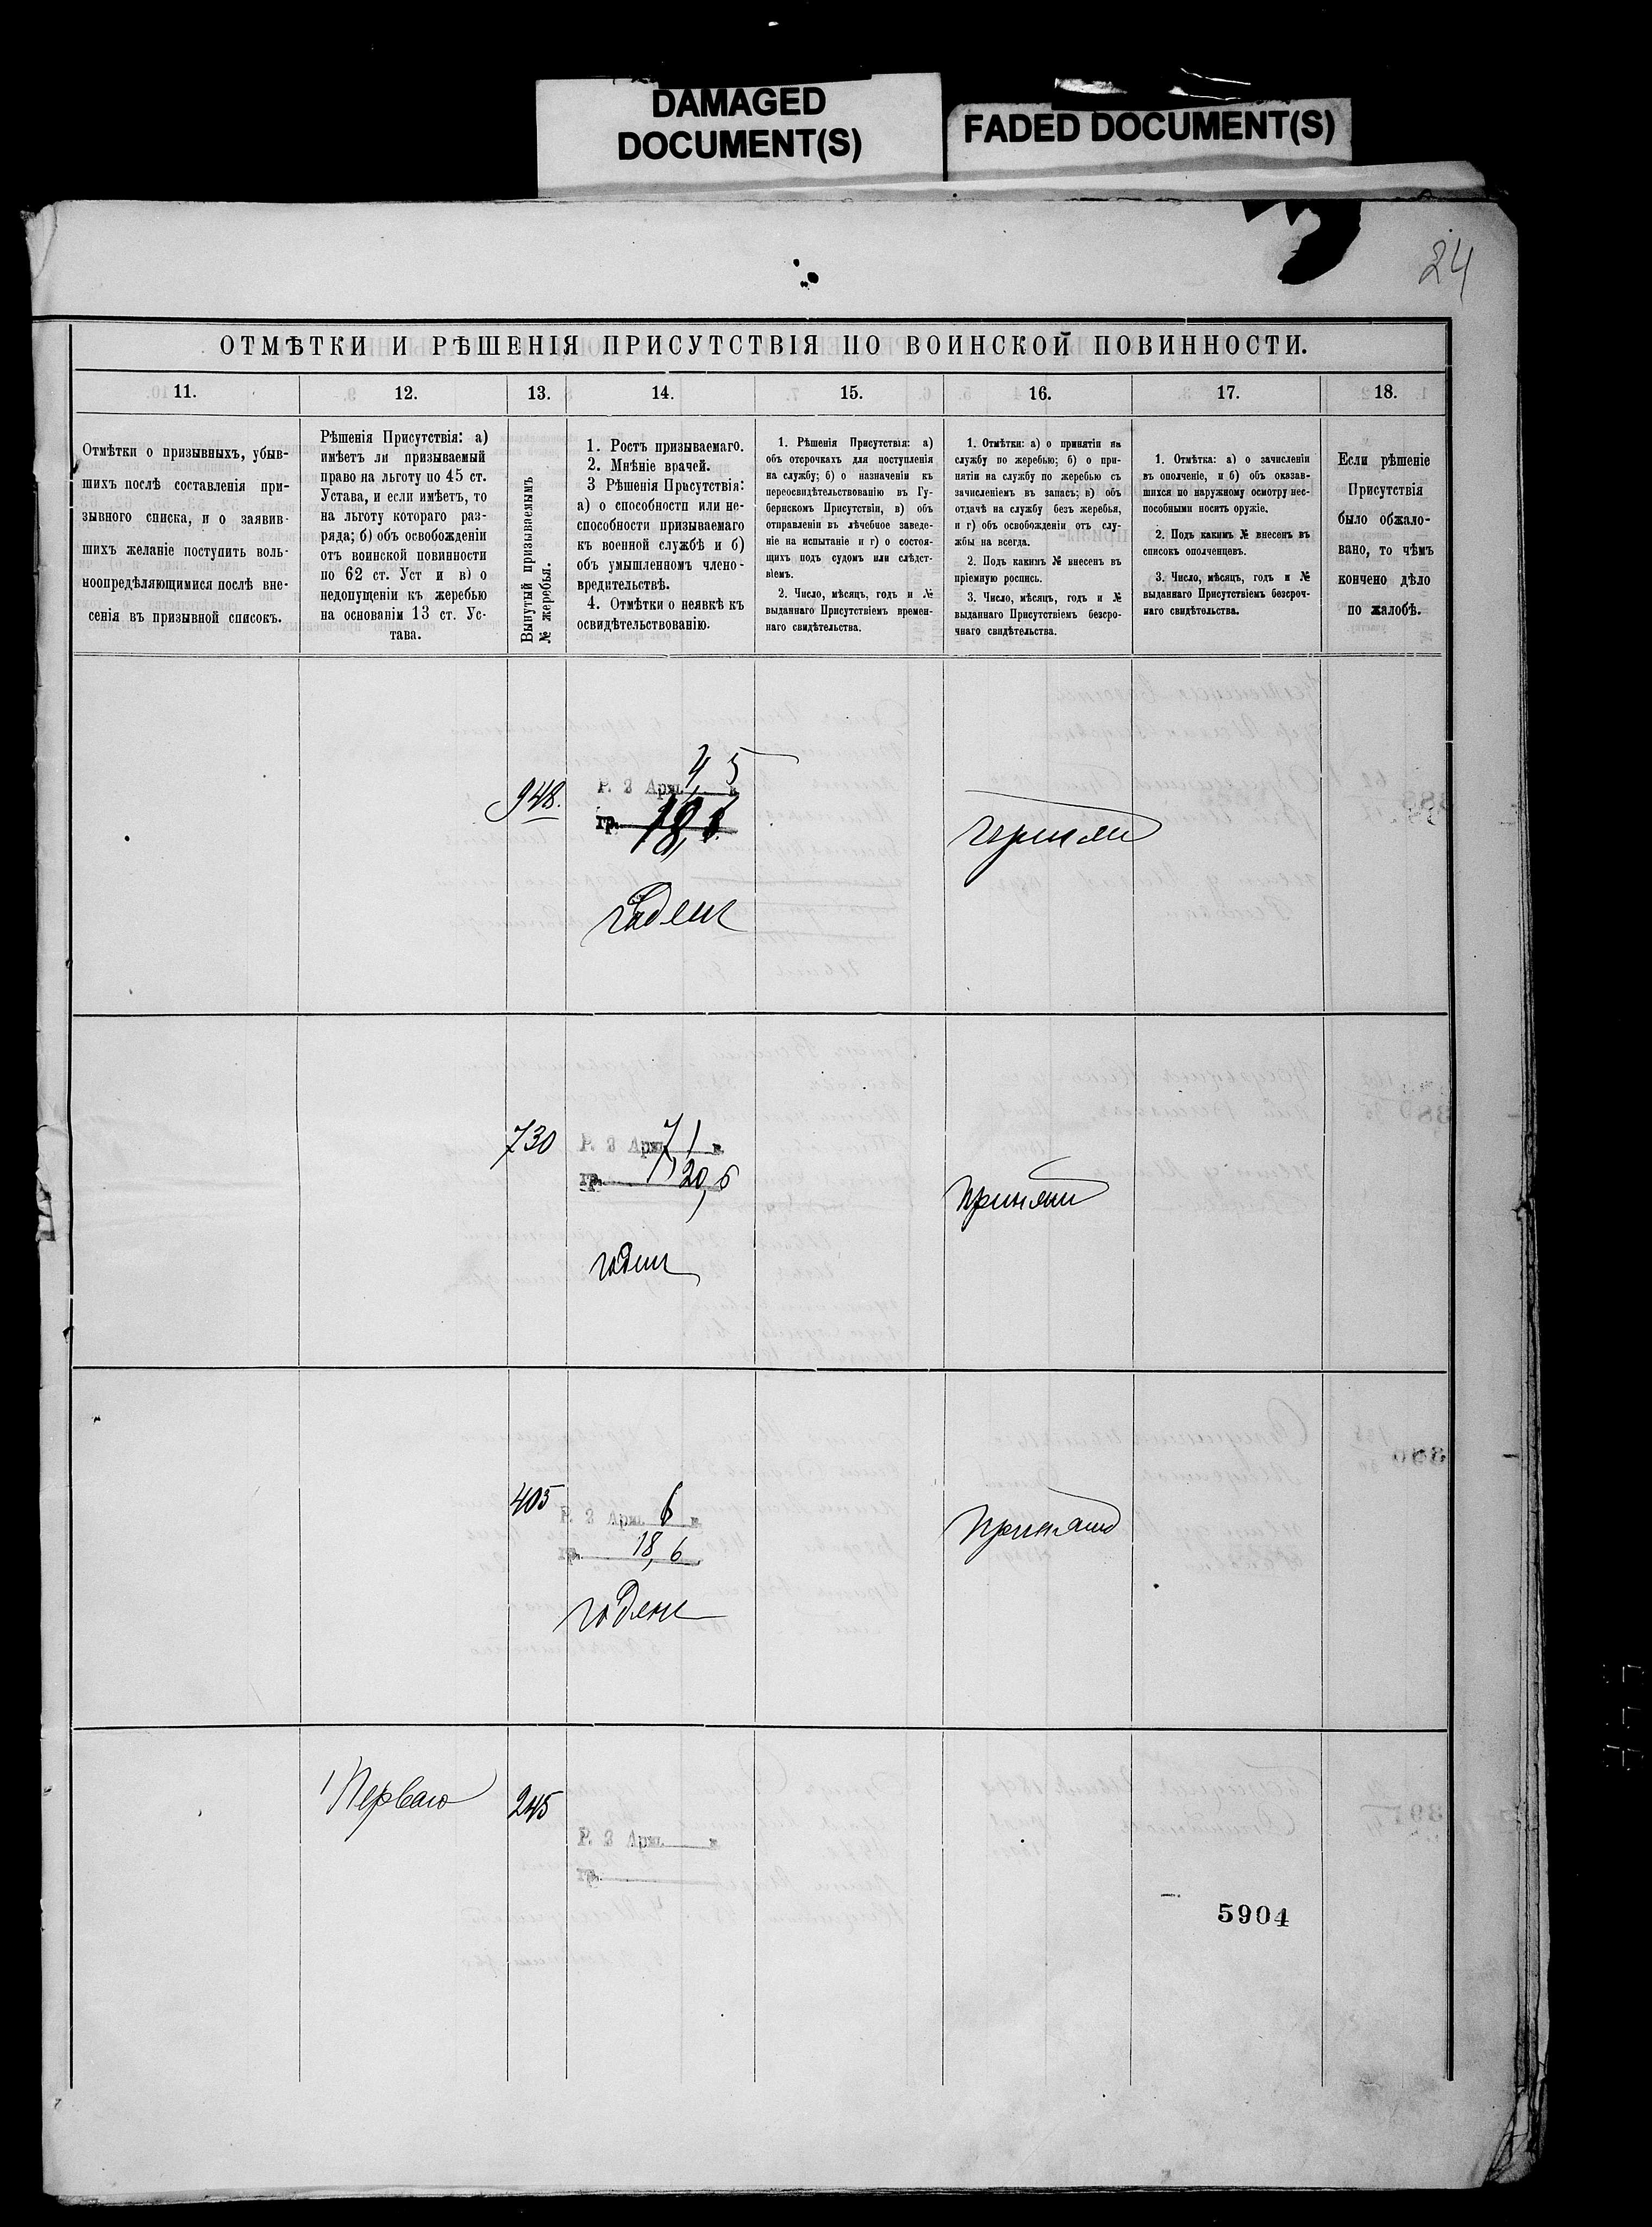 DAMAGED
DOCUMENT(S)
FADED DOCUMENT(S)
24
ОТМѢТКИ И РѢШЕНІЯ ПРИСУТСТВІЯ ПО ВОИНСКОЙ ПОВИННОСТИ.
11.
12.
13.
14.
15.
16.
17.
18.
Отмѣтки о призывныхъ, убыв-
шихъ послѣ составленія при-
зывного списка, и о заявив-
шихъ желаніе поступить воль-
ноопредѣляющимися послѣ вне-
сенія въ призывной списокъ.
Рѣшенія Присутствія: а)
имѣетъ ли призываемый
право на льготу по 45 ст.
Устава, и если имѣетъ, то
на льготу котораго раз-
ряда; б) объ освобожденіи
отъ воинской повинности
по 62 ст. Уст и в) о
недопущеніи къ жеребью
на основаніи 13 ст. Ус-
тава.
Вынутый призываемымъ
№ жеребья.
1. Ростъ призываемаго.
2. Мнѣніе врачей.
3 Рѣшенія Присутствія:
а) о способности или не-
способности призываемаго
къ военной службѣ и б)
объ умышленномъ члено-
вредительствѣ.
4. Отмѣтки о неявкѣ къ
освидѣтельствованію.
1. Рѣшенія Присутствія: а)
объ отсрочкахъ для поступленія
на службу; б) о назначеніи къ
переосвидѣтельствованію въ Гу-
бернскомъ Присутствіи, в) объ
отправленіи въ лѣчебное заведе-
ніе на испытаніе и г) о состоя-
щихъ подъ судомъ или слѣдст-
віемъ.
2. Число, мѣсяцъ, годъ и №
выданнаго Присутствіемъ времен-
наго свидѣтельства.
1. Отмѣтки: а) о принятіи на
службу по жеребью; б) о при-
нятіи на службу по жеребью съ
зачисленіемъ въ запасъ; в) объ
отдачѣ на службу безъ жеребья,
и г) объ освобожденіи отъ слу-
жбы на всегда.
2. Подъ какимъ № внесенъ въ
пріемную роспись.
3. Число, мѣсяцъ, годъ и №
выданнаго Присутствіемъ безсро-
чнаго свидѣтельства.
1. Отмѣтка: а) о зачисленіи
въ ополченіе, и б) объ оказав-
шихся по наружному осмотру нес-
пособными носить оружіе.
2. Подъ какимъ № внесенъ въ
списокъ ополченцевъ.
3. Число, мѣсяцъ, годъ и №
выданнаго Присутствіемъ безсроч-
наго свидѣтельства.
Если рѣшеніе
Присутствія
было обжало-
вано, то чѣмъ
кончено дѣло
по жалобѣ.
948.
Р. 2 Арш. 4,5 в.
гр.
годенъ
730
Р. 2 Арш. 7 1 в.
гр. 20,5
годенъ
принятъ
405
Р. 2 Арш. 6 в.
гр. 18,6
годенъ
принятъ
1 Перваго
245
Р. 2 Арш. в.
гр.
5904